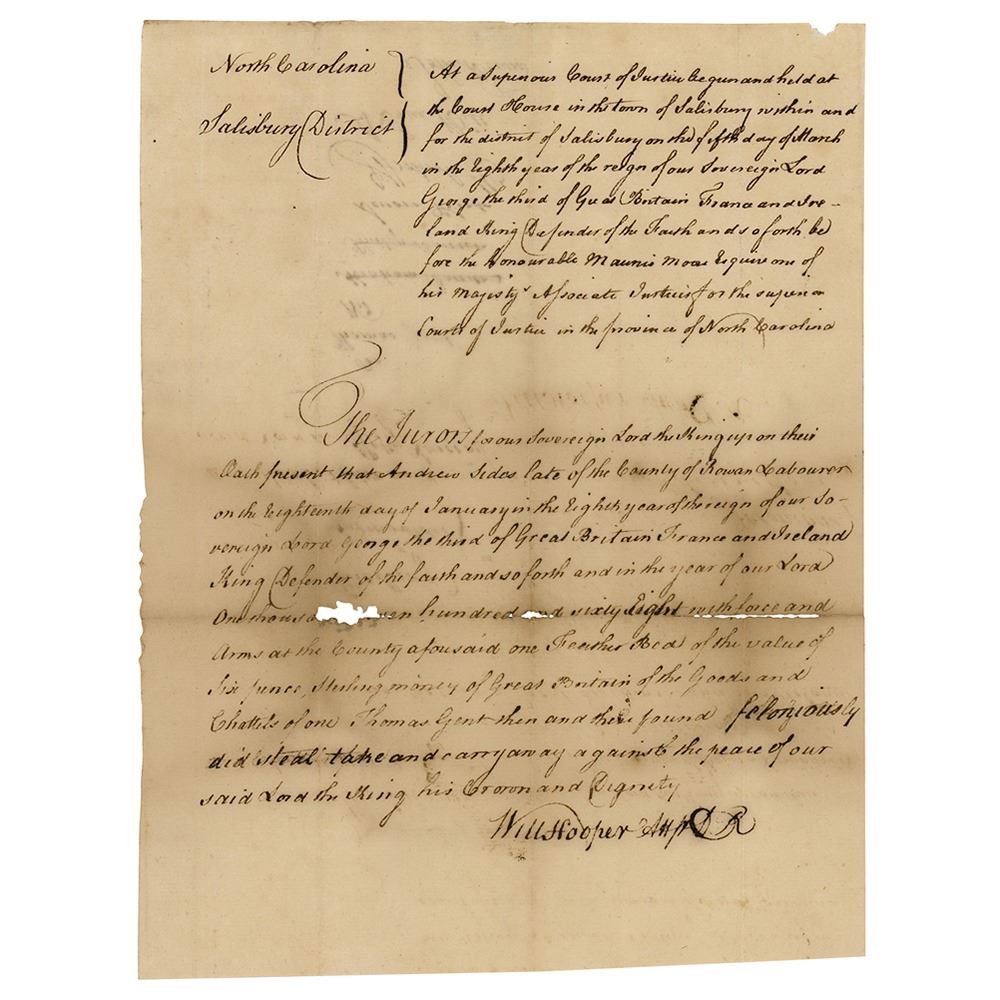 North Carolina
Salisbury District
At a Superiour Court of Justice begun and held at
the Court House in the town of Salisbury within and
for the district of Salisbury on the fifth day of March
in the Eighth year of the reign of our Sovereign Lord
George the third of Great Britain France and Ire-
land King Defender of the Faith and so forth be
fore the Honourable Maurice Moore Esquire one of
his Majesty's Associate Justices for the superior
Courts of Justice in the province of North Carolina
The Jurors for our Sovereign Lord the King upon their
Oath present that Andrew Sides late of the County of Rowan Labourer
on the Eighteenth day of January in the Eighth year of the reign of our So-
vereign Lord George the third of Great Britain France and Ireland
King Defender of the faith and so forth and in the year of our Lord
One thousa en hundred and sixty Eight with force and
Arms at the County afousaid one Feather Bed of the value of
Six pence, Sterling money of Great Britain of the Goods and
Chattels of one Thomas Gent then and there found feloniously
did steal take and carry away against the peace of our
said Lord the King his Crown and Dignity
Will Hooper Att D R